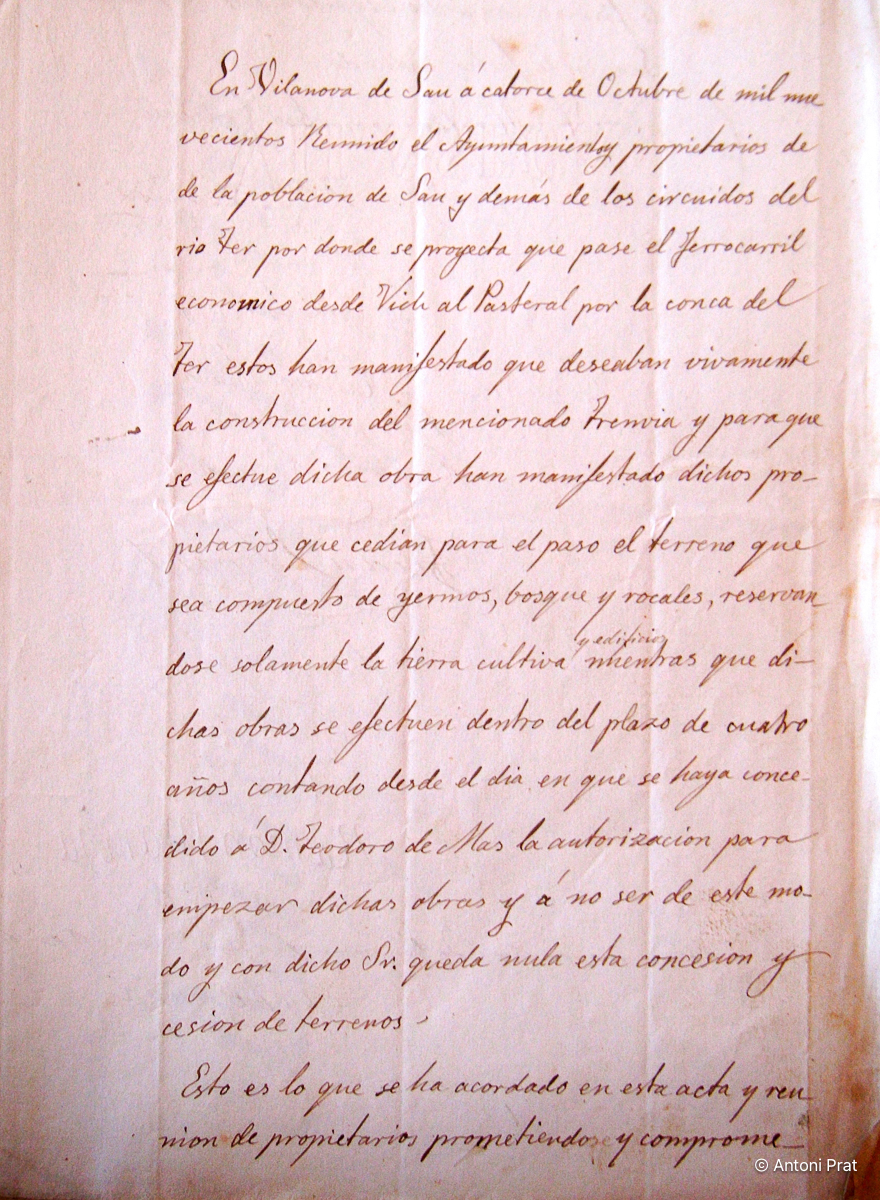 En Vilanova de Sau á catorce de Octubre de mil nue
vecientos Reunido el Ayuntamiento y propietarios de
de la poblacion de Sau y demás de los circuidos del
rio Ter por donde se proyecta que pase el ferrocarril
economico desde Vich al Pasteral por la conca del
Ter estos han manifestado que deseaban vivamente
la construccion del mencionado Trenvia y para que
se efectue dicha obra han manifestado dichos pro-
pietarios que cedian para el paso el terreno que
sea compuesto de yermos, bosque y rocales, reservan-
y edificios
dose solamente la tierra cultiva mientras que di-
chas obras se efectuen dentro del plazo de cuatro
años contando desde el dia en que se haya conce-
dido á D. Teodoro de Mas la autorización para
empezar dichas obras y á no ser de este mo-
do y con dicho Sr. queda nula esta concesion y
cesion de terrenos.
Esto es lo que se ha acordado en esta acta y reu-
nion de propietarios prometiendose y comprome-
© Antoni Prat